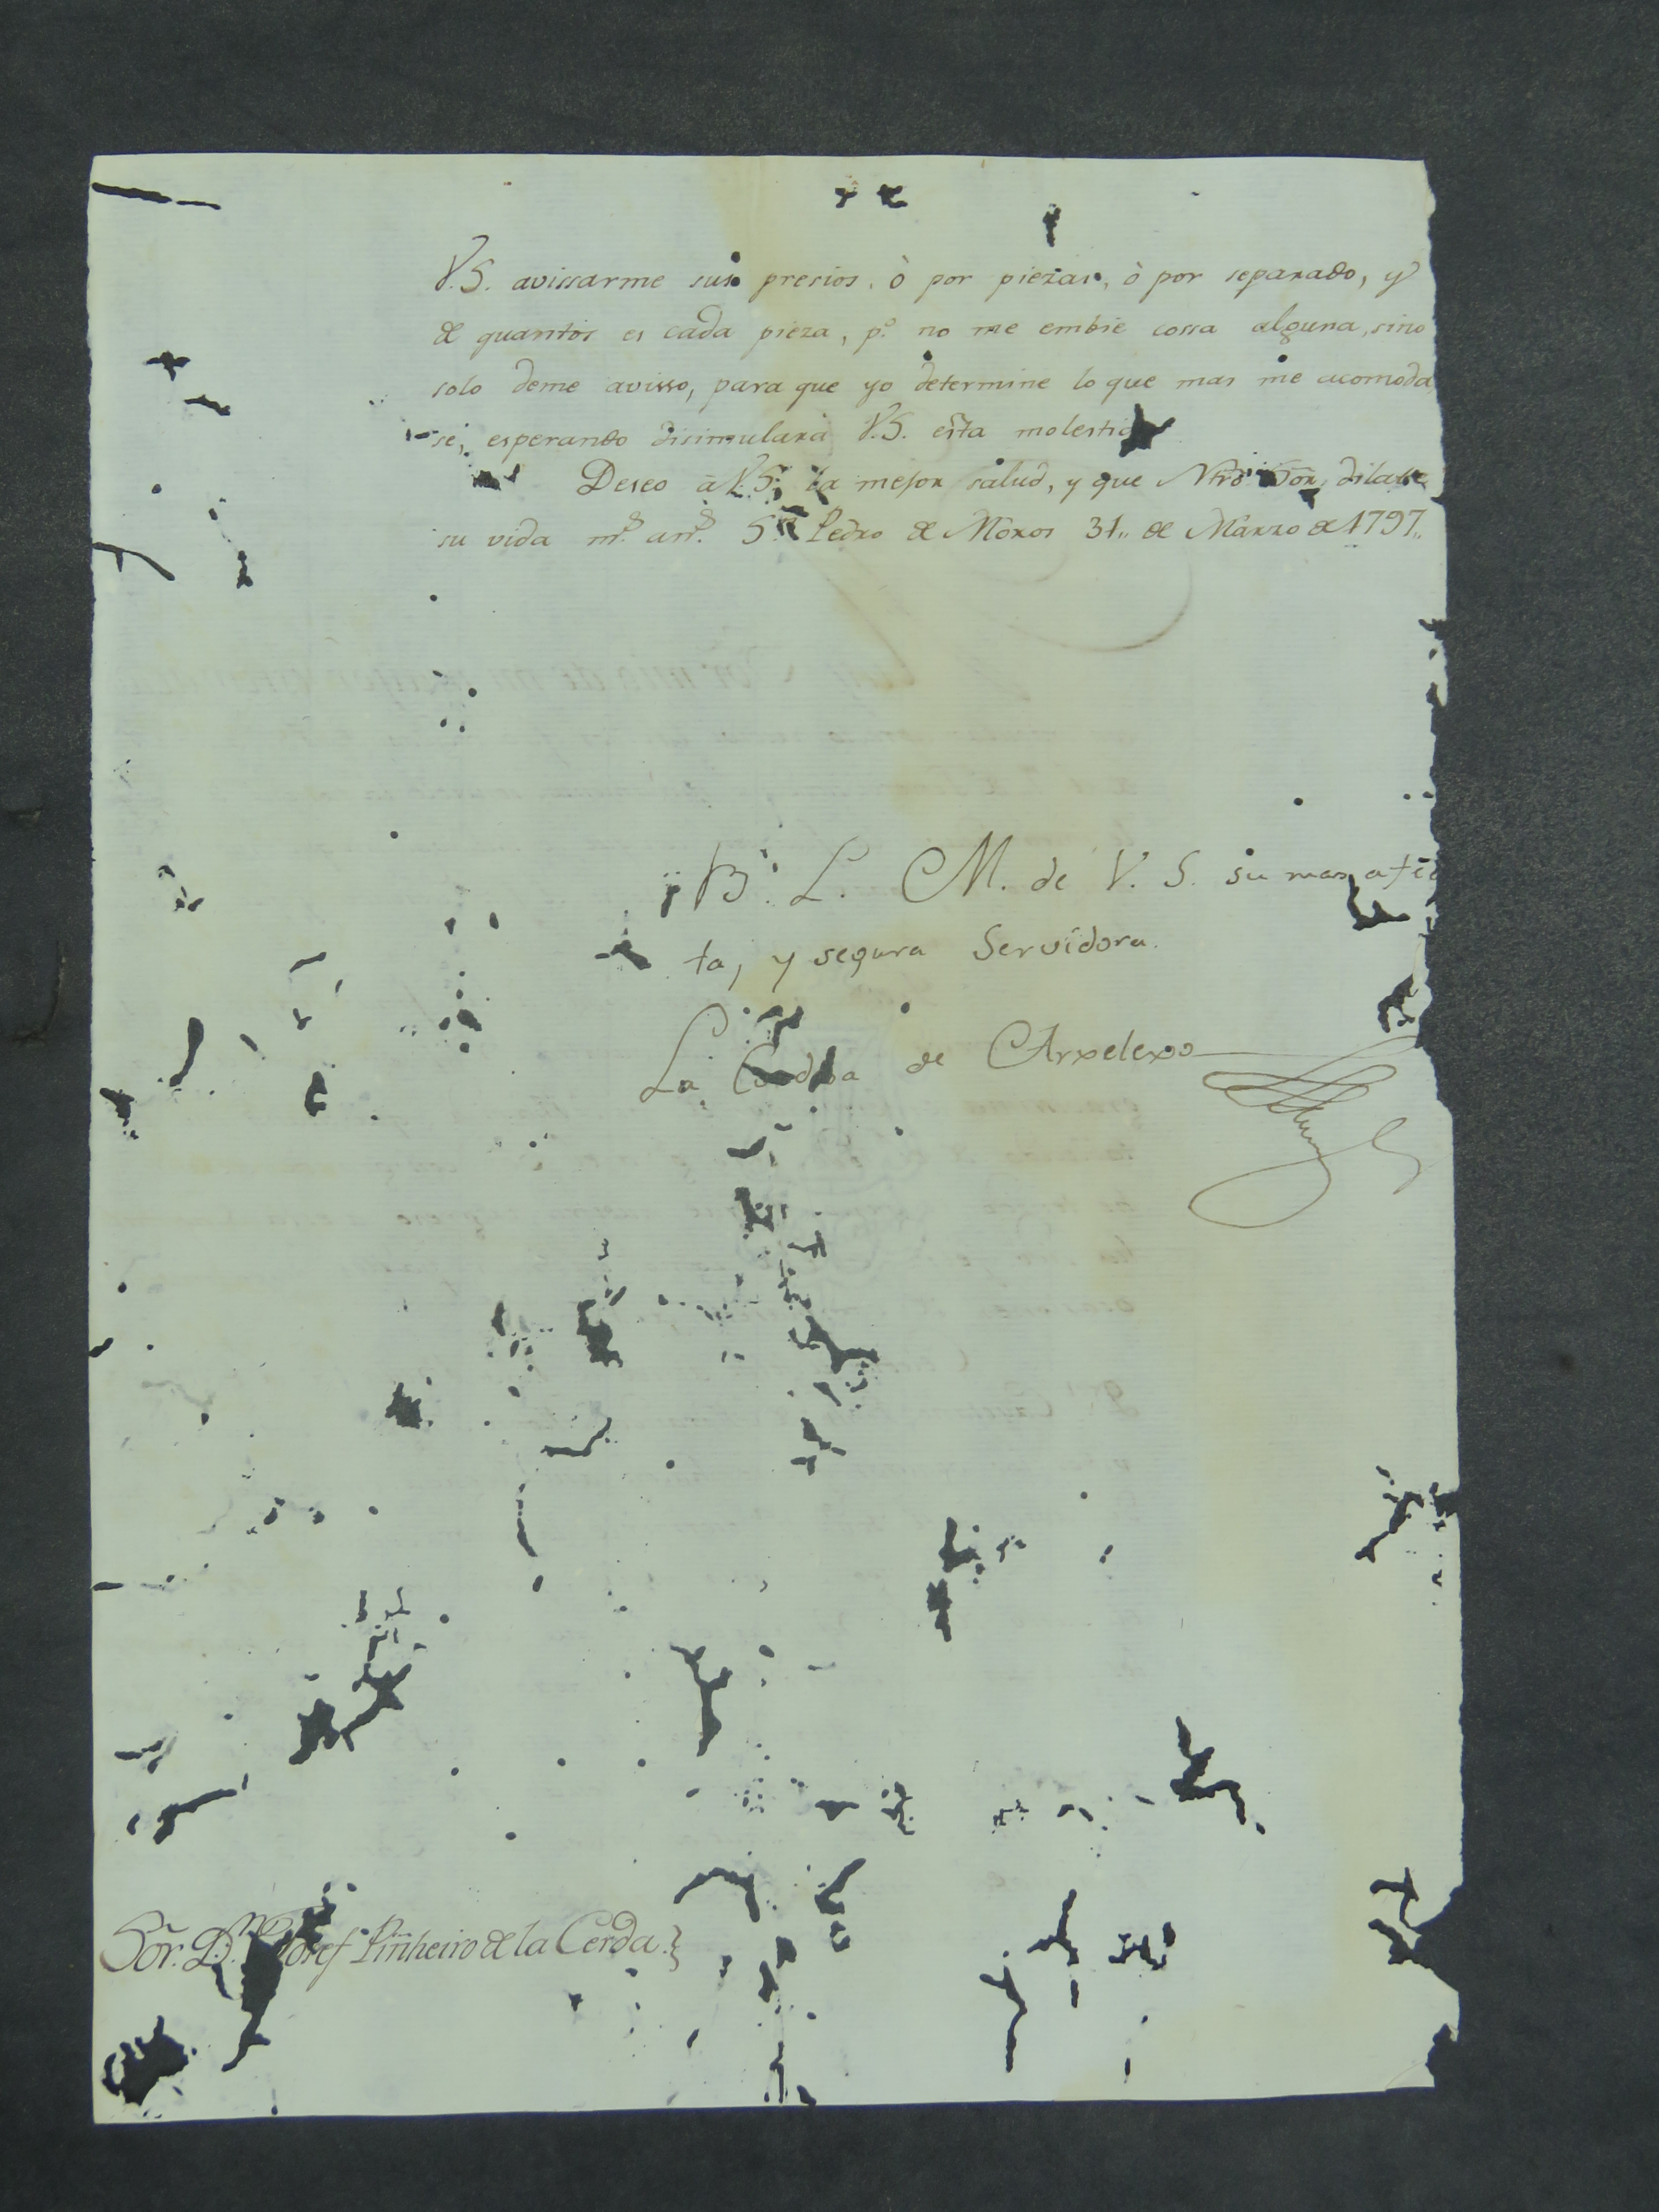 V.S. avissarme sus presios, ò por piezas, ò por separado, y
de quantos es cada pieza, p.º no me embie cossa alguna, sino
solo deme avisso, para que yo determine lo que mas me acomoda
se, esperando disimulará V.S. esta molestia
Deseo à V.S. la mejor salud, y que Ntrõ Sõr, dilate
su vida m.s an.s S.n Pedro de Moros 31,, de Marzo de 1797,,
B. L. M. de V. S. su mas ate
ta, y segura Servidora.
La de
Sõr. D.n Josef Piñheiro de la Cerda.